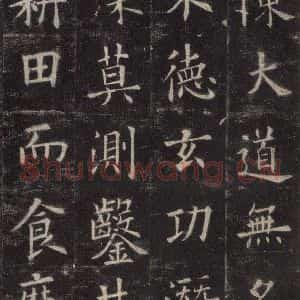 陳大道無名
不德玄功潛
深莫測鑿井
耕田而食靡
Shufawang.cn